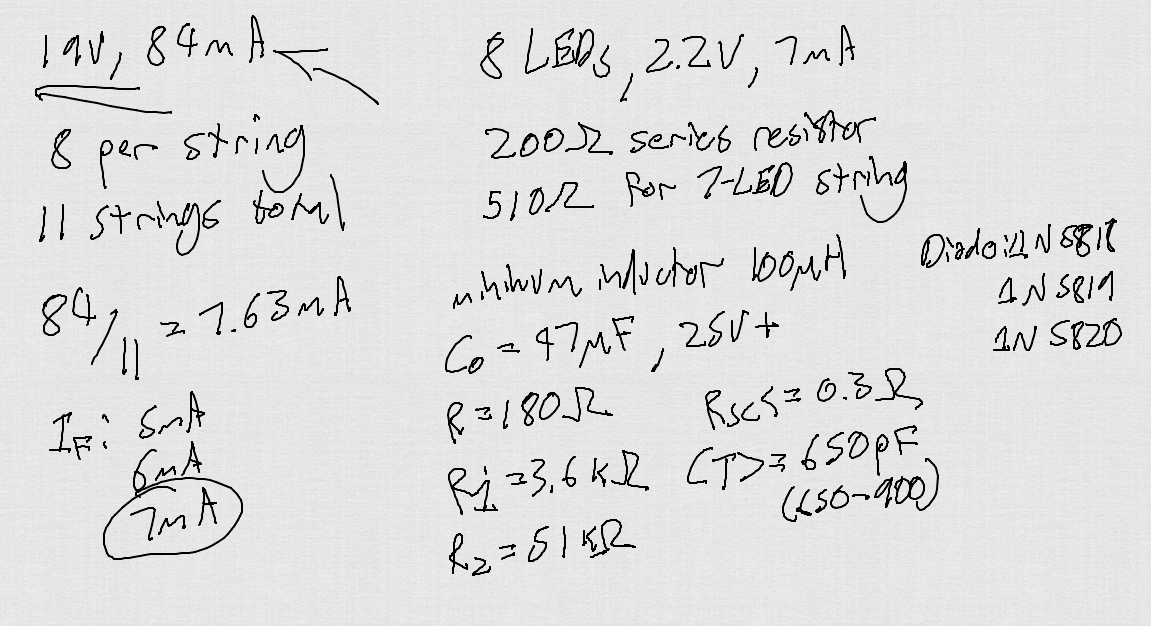 19V, 84mA
8 per string
11 strings total
84/11 = 7.63mA
IF: 5mA
6mA
7mA
8 LEDs, 2.2V, 7mA
200Ω series resistor
510Ω for 7-LED string
minimum inductor 100μH
Co = 47μF, 25V+
R = 180Ω
R1 = 3.6kΩ
R2 = 51kΩ
Rscs = 0.3Ω
CT = 650pF
(650-900)
Diode: 1N5818
1N5819
1N5820